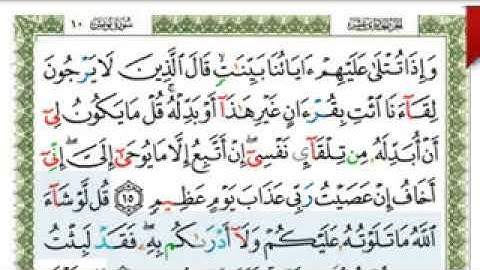 سورة يونس ١٠
وَإِذَا تُتْلَىٰ عَلَيْهِمْ ءَايَاتُنَا بَيِّنَٰتٍ قَالَ ٱلَّذِينَ لَا يَرْجُونَ
لِقَآءَنَا ٱئْتِ بِقُرْءَانٍ غَيْرِ هَٰذَآ أَوْ بَدِّلْهُ قُلْ مَا يَكُونُ لِيٓ
أَنْ أُبَدِّلَهُۥ مِن تِلْقَآيِٕ نَفْسِيٓ إِنْ أَتَّبِعُ إِلَّا مَا يُوحَىٰٓ إِلَيَّ إِنِّيٓ
أَخَافُ إِنْ عَصَيْتُ رَبِّي عَذَابَ يَوْمٍ عَظِيمٍ ١٥ قُل لَّوْ شَآءَ
ٱللَّهُ مَا تَلَوْتُهُۥ عَلَيْكُمْ وَلَآ أَدْرَىٰكُم بِهِۦ فَقَدْ لَبِثْتُ